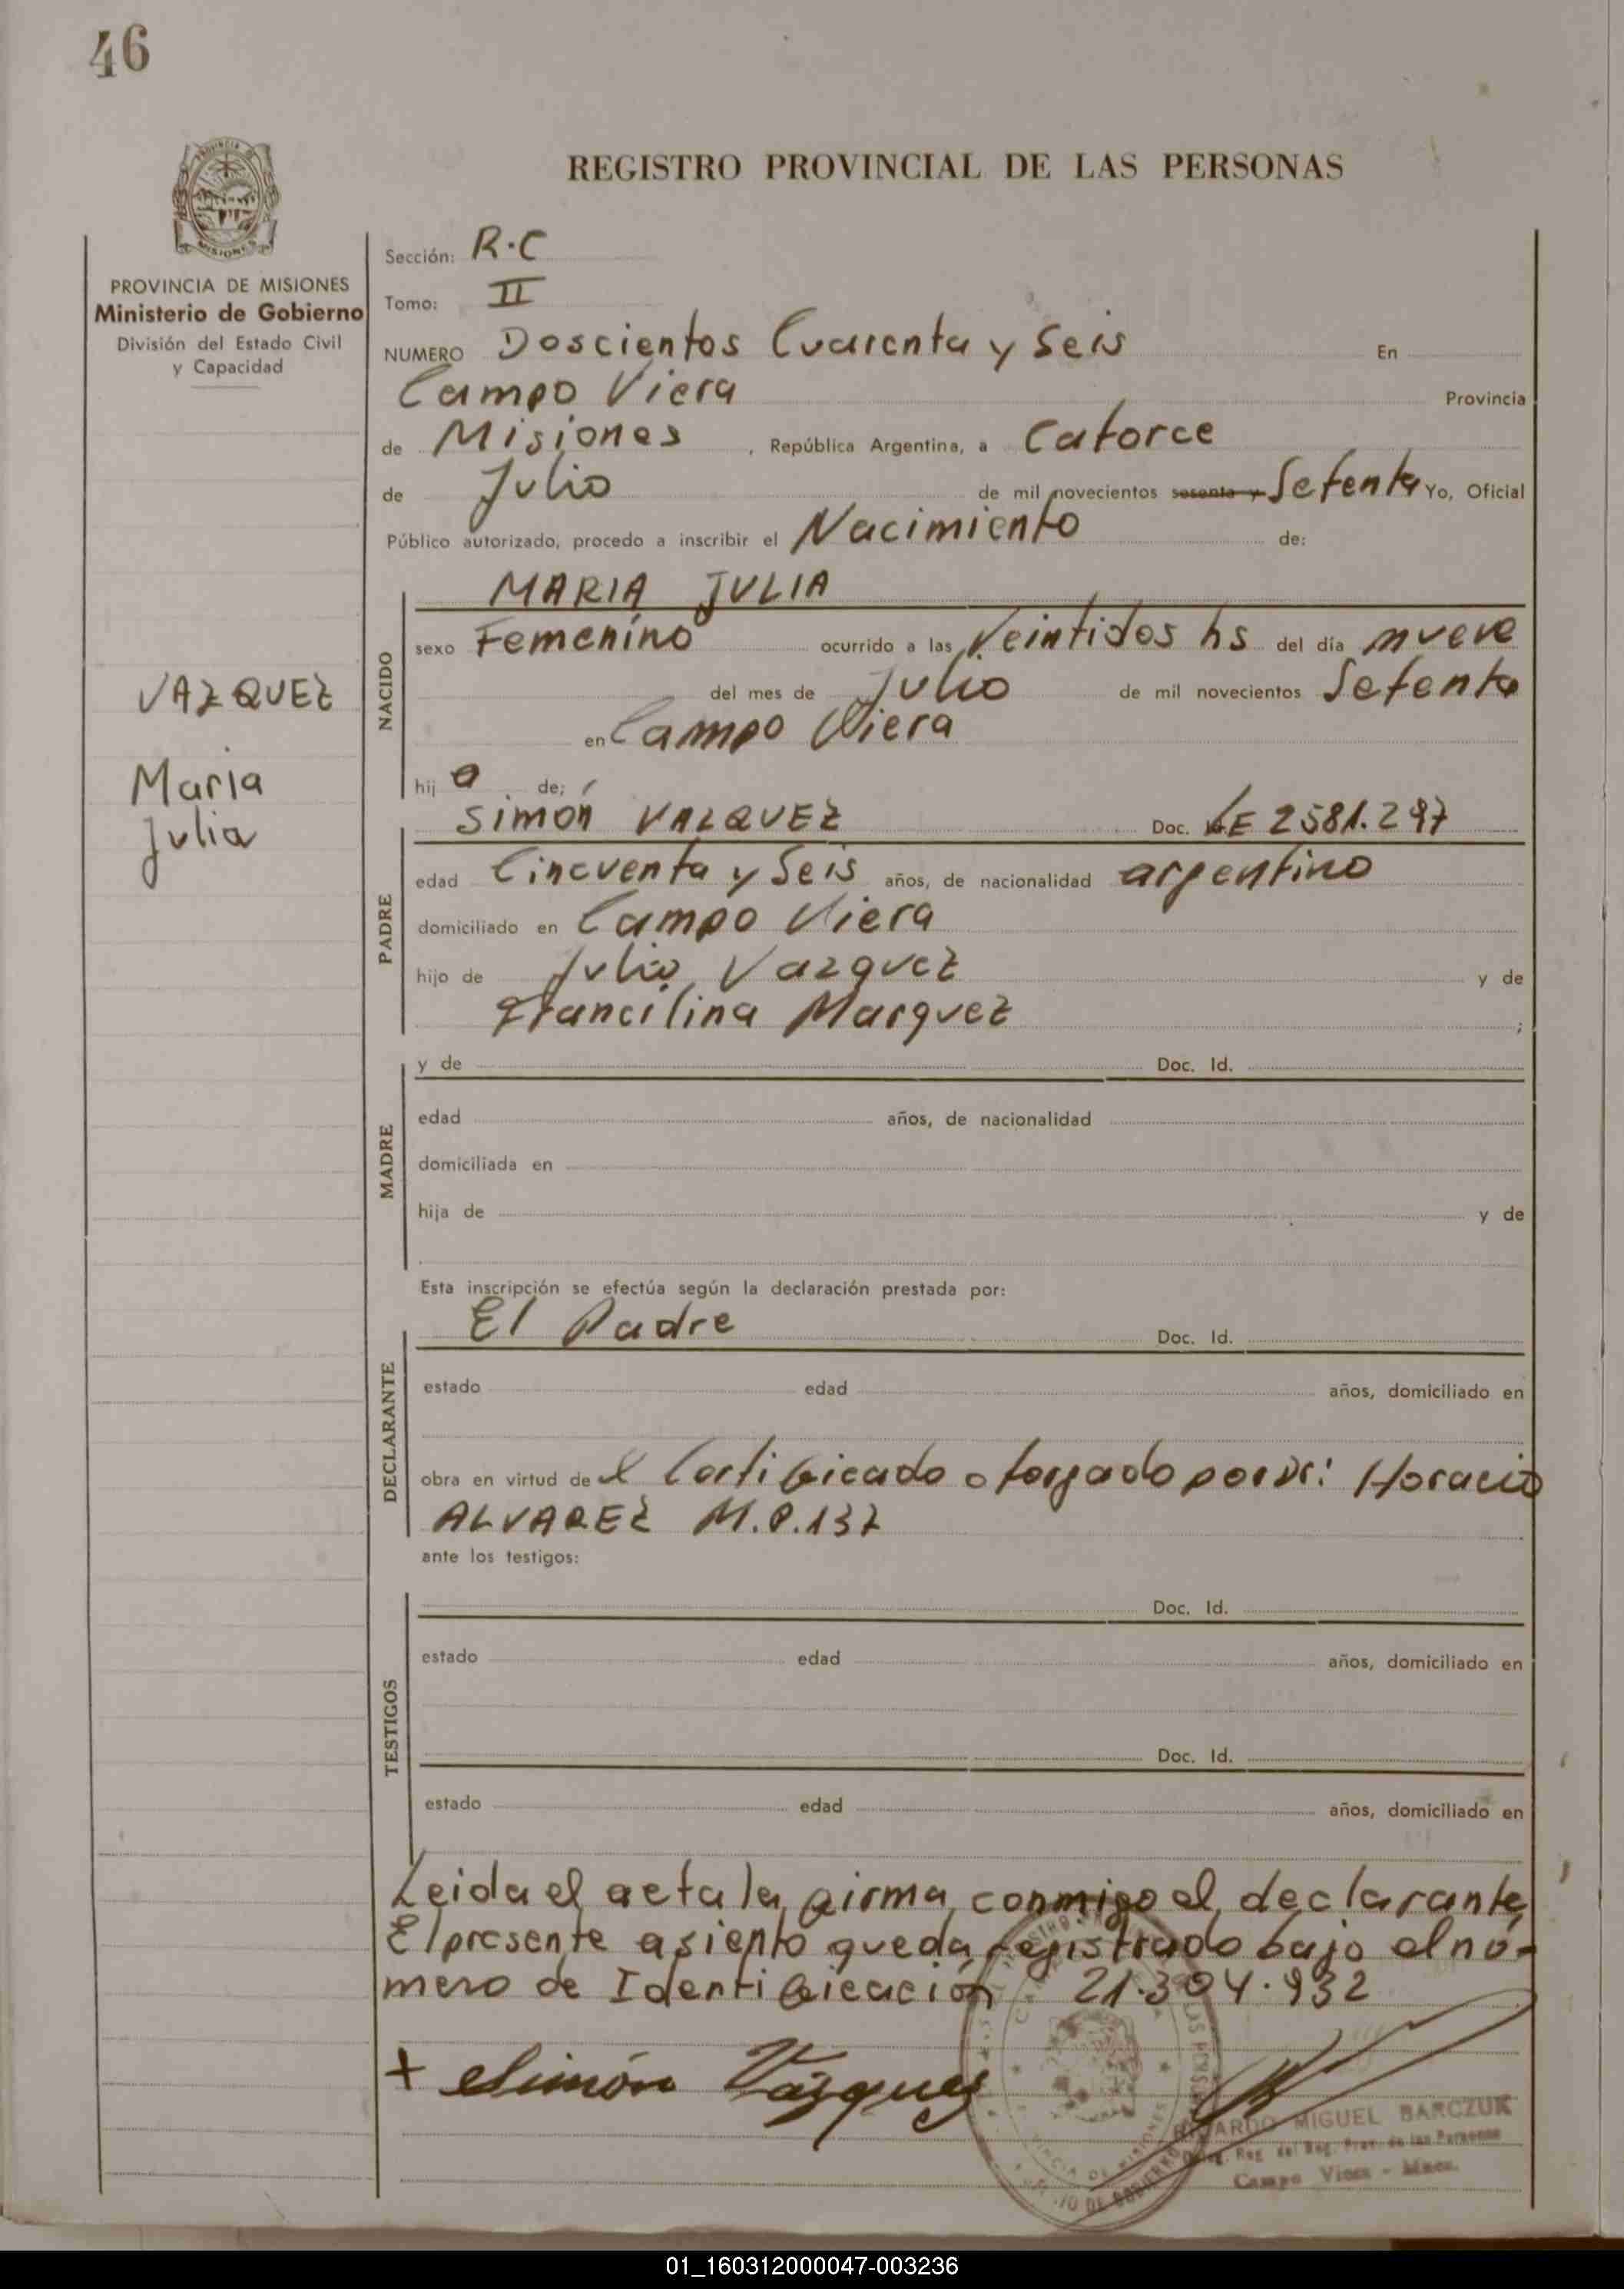 46
REGISTRO PROVINCIAL DE LAS PERSONAS
MISIONES
PROVINCIA DE MISIONES
Ministerio de Gobierno
División del Estado Civil
y Capacidad
VAZQUEZ
Maria
Julia
Sección: R.C
Tomo: II
NUMERO Doscientos Cuarenta y Seis En
Campo Viera Provincia
de Misiones, República Argentina, a Catorce
de Julio de mil novecientos sesenta y Setenta Yo, Oficial
Público autorizado, procedo a inscribir el Nacimiento de:
NACIDO
MARIA JULIA
sexo Femenino ocurrido a las Veintidos hs del día nueve
del mes de Julio de mil novecientos Setenta
en Campo Viera
hij a de;
PADRE
Simón VAZQUEZ Doc. LE 2581.297
edad Cincuenta y Seis años, de nacionalidad argentino
domiciliado en Campo Viera
hijo de Julio Vazquez y de
Francilina Marquez ;
MADRE
y de Doc. Id.
edad años, de nacionalidad
domiciliada en
hija de y de
Esta inscripción se efectúa según la declaración prestada por:
DECLARANTE
El Padre Doc. Id.
estado edad años, domiciliado en
obra en virtud de el Certificado otorgado por Dr: Horacio
ALVAREZ M.P.137
ante los testigos:
TESTIGOS
Doc. Id.
estado edad años, domiciliado en
Doc. Id.
estado edad años, domiciliado en
Leida el acta la firma conmigo el declarante
El presente asiento queda registrado bajo el nú-
mero de Identificación 21.304.932
+ Simón Vázquez
RICARDO MIGUEL BARCZUK
Reg. del Reg. Prov. de las Personas
Campo Viera - Mnes.
01_160312000047-003236